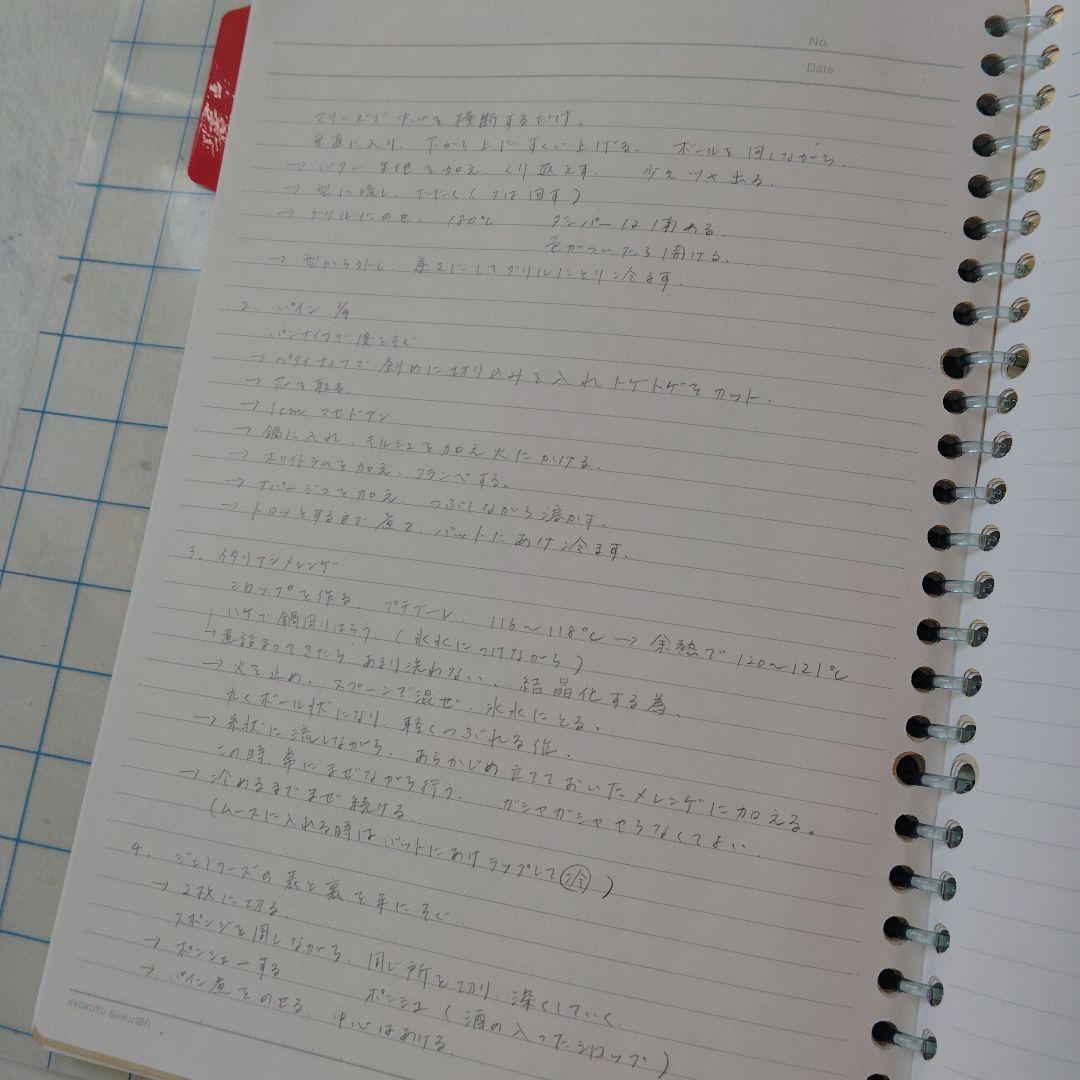 No.
Date
マリーズで中心を横断するだけ。
垂直に入り、下から上にすくい上げる。 ボールを回しながら。
→ バター 生地を加え、くり返えす。 少々ツヤ出る。
→ 型に流し、たたく(又は回す)
→ グリルにのせ、180℃ ダンパーは閉める。
色がついたら開ける。
→ 型から外し、逆さにしてグリルにとり冷ます。
2. パイン 1/4
パンナイフで皮をそぐ
→ ペティナイフで斜めに切り込みを入れトゲトゲをカット。
→ 芯を取る。
→ 1cm マセドアン
→ 鍋に入れ、キルシュを加え火にかける。
→ ホワイトラムを加え、フランベする。
→ ナパージュを加え、つぶしながら溶かす。
→ トロッとするまで煮て、バットにあけ冷ます。
3. イタリアンメレンゲ
シロップを作る。プチブーレ 116〜118℃ → 余熱で120〜121℃
ハケで鍋周りはらう。(氷水につけながら)
↳ 煮詰まってきたら、あまり洗わない、結晶化する為。
→ 火を止め、スプーンで混ぜ、氷水にとる。
丸くボール状になり、軽くつぶれる位。
→ 糸状に流しながら、あらかじめ立てておいたメレンゲに加える。
この時、常にまぜながら行う。 ガシャガシャやらなくてよい。
→ 冷めるまでまぜ続ける。
(ムースに入れる時はバットにあけラップして冷)
4. ジェノワーズの表と裏を平にそぐ
→ 2枚に切る。
スポンジを回しながら、同じ所を切り、深くしていく
→ ポンシェする ポンシュ(酒の入ったシロップ)
→ パイン煮をのせる。中心はあける。
KYOKUTO